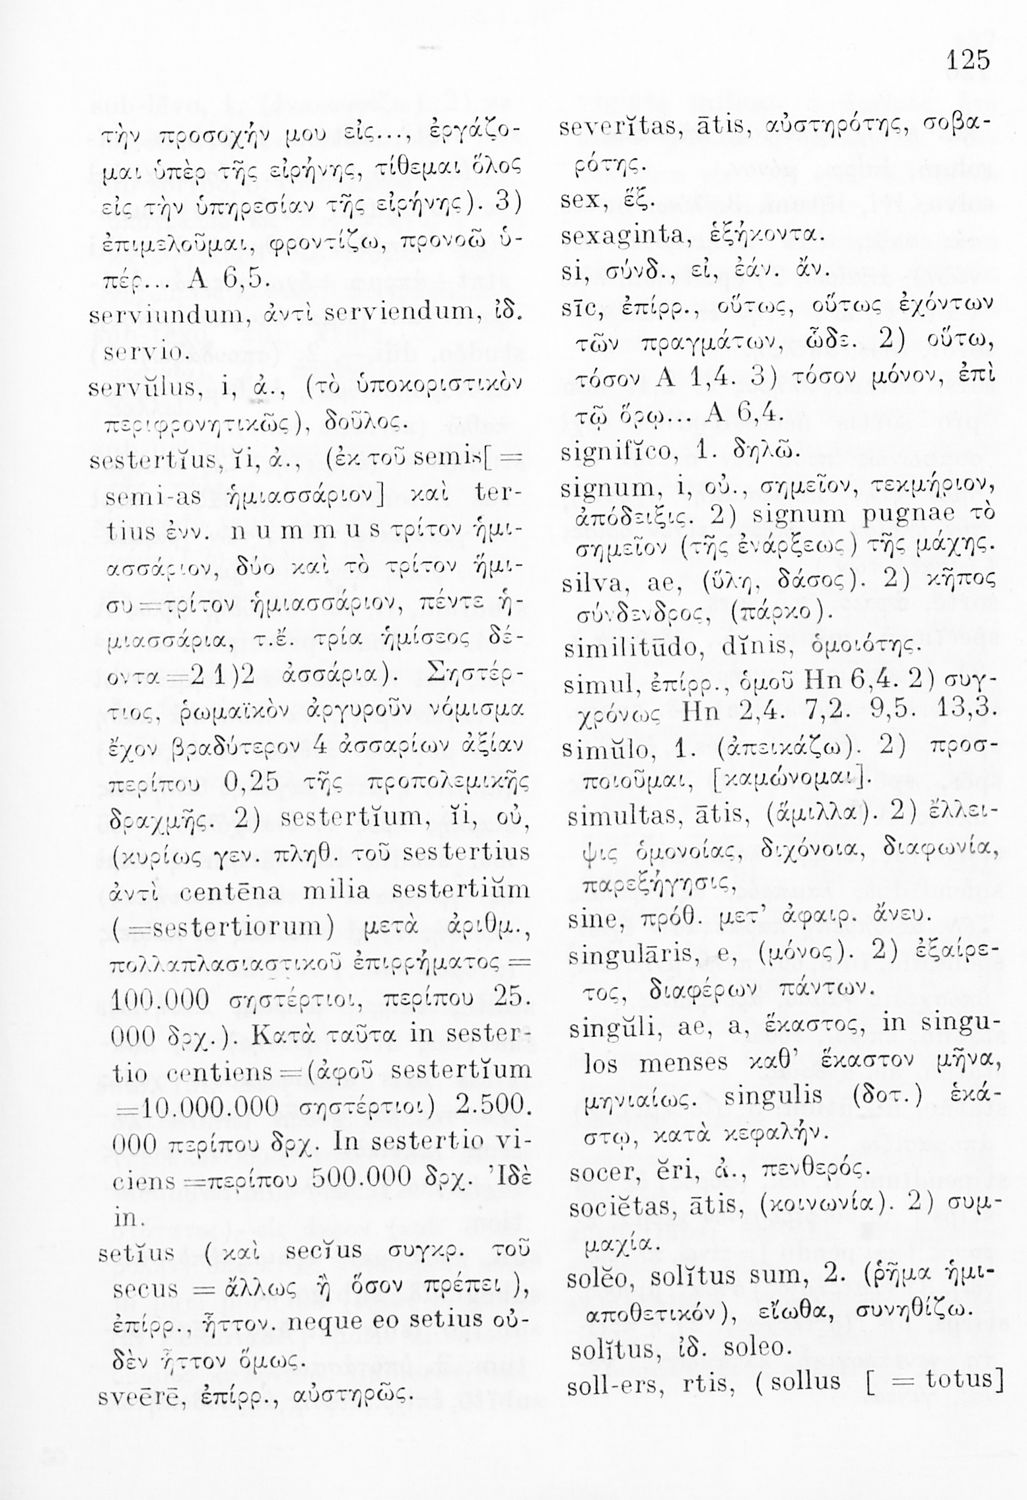 125
τὴν προσοχήν μου εἰς..., ἐργάζο-
μαι ὑπὲρ τῆς εἰρήνης, τίθεμαι ὅλος
εἰς τὴν ὑπηρεσίαν τῆς εἰρήνης). 3)
ἐπιμελοῦμαι, φροντίζω, προνοῶ ὑ-
πέρ... A 6,5.
serviundum, ἀντὶ serviendum, ἰδ.
servio.
servŭlus, i, ἀ., (τὸ ὑποκοριστικὸν
περιφρονητικῶς), δοῦλος.
sestertĭus, ĭi, ἀ., (ἐκ τοῦ semis[ =
semi-as ἡμιασσάριον] καὶ ter-
tius ἐνν. nummus τρίτον ἡμι-
ασσάριον, δύο καὶ τὸ τρίτον ἥμι-
συ=τρίτον ἡμιασσάριον, πέντε ἡ-
μιασσάρια, τ.ἔ. τρία ἡμίσεος δέ-
οντα=2 1)2 ἀσσάρια). Σηστέρ-
τιος, ῥωμαϊκὸν ἀργυροῦν νόμισμα
ἔχον βραδύτερον 4 ἀσσαρίων ἀξίαν
περίπου 0,25 τῆς προπολεμικῆς
δραχμῆς. 2) sestertĭum, ĭi, οὐ,
(κυρίως γεν. πληθ. τοῦ sestertius
ἀντὶ centēna milia sestertiŭm
(=sestertiorum) μετὰ ἀριθμ.,
πολλαπλασιαστικοῦ ἐπιρρήματος =
100.000 σηστέρτιοι, περίπου 25.
000 δρχ.). Κατὰ ταῦτα in sester-
tio centiens=(ἀφοῦ sestertĭum
=10.000.000 σηστέρτιοι) 2.500.
000 περίπου δρχ. In sestertio vi-
ciens=περίπου 500.000 δρχ. Ἰδὲ
in.
setĭus (καὶ secĭus συγκρ. τοῦ
secus = ἄλλως ἢ ὅσον πρέπει),
ἐπίρρ., ἧττον. neque eo setius οὐ-
δὲν ἧττον ὅμως.
sveērē, ἐπίρρ., αὐστηρῶς.
severĭtas, ātis, αὐστηρότης, σοβα-
ρότης.
sex, ἕξ.
sexaginta, ἑξήκοντα.
si, σύνδ., εἰ, ἐάν. ἄν.
sīc, ἐπίρρ., οὕτως, οὕτως ἐχόντων
τῶν πραγμάτων, ὧδε. 2) οὕτω,
τόσον A 1,4. 3) τόσον μόνον, ἐπὶ
τῷ ὅρῳ... A 6,4.
signifĭco, 1. δηλῶ.
signum, i, οὐ., σημεῖον, τεκμήριον,
ἀπόδειξις. 2) signum pugnae τὸ
σημεῖον (τῆς ἐνάρξεως) τῆς μάχης.
silva, ae, (ὕλη, δάσος). 2) κῆπος
σύνδενδρος, (πάρκο).
similitūdo, dĭnis, ὁμοιότης.
simul, ἐπίρρ., ὁμοῦ Hn 6,4. 2) συγ-
χρόνως Hn 2,4. 7,2. 9,5. 13,3.
simŭlo, 1. (ἀπεικάζω). 2) προσ-
ποιοῦμαι, [καμώνομαι].
simultas, ātis, (ἅμιλλα). 2) ἔλλει-
ψις ὁμονοίας, διχόνοια, διαφωνία,
παρεξήγησις,
sine, πρόθ. μετ' ἀφαιρ. ἄνευ.
singulāris, e, (μόνος). 2) ἐξαίρε-
τος, διαφέρων πάντων.
singŭli, ae, a, ἕκαστος, in singu-
los menses καθ' ἕκαστον μῆνα,
μηνιαίως. singulis (δοτ.) ἑκά-
στῳ, κατὰ κεφαλήν.
socer, ĕri, ἀ., πενθερός.
sociĕtas, ātis, (κοινωνία). 2) συμ-
μαχία.
solĕo, solĭtus sum, 2. (ῥῆμα ἡμι-
αποθετικόν), εἴωθα, συνηθίζω.
solĭtus, ἰδ. soleo.
soll-ers, rtis, (sollus [ = totus]